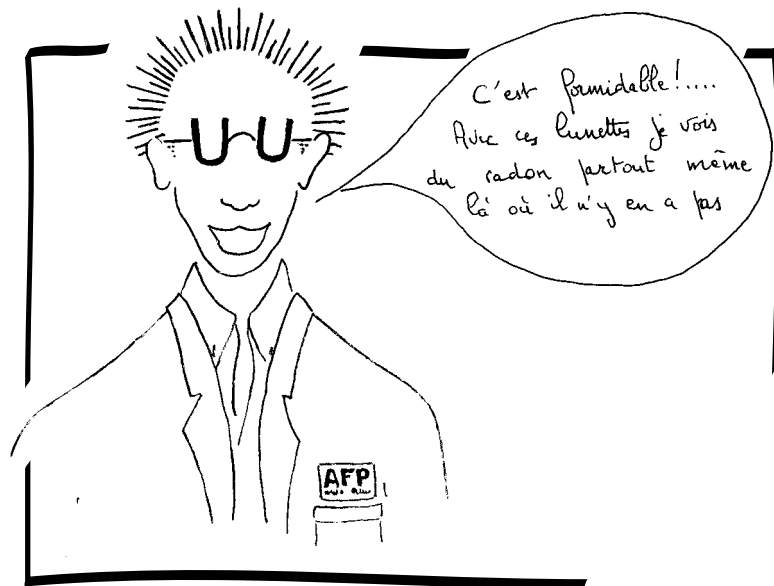 C'est formidable!....
Avec ces lunettes je vois
du radon partout même
là où il n'y en a pas
UU
AFP